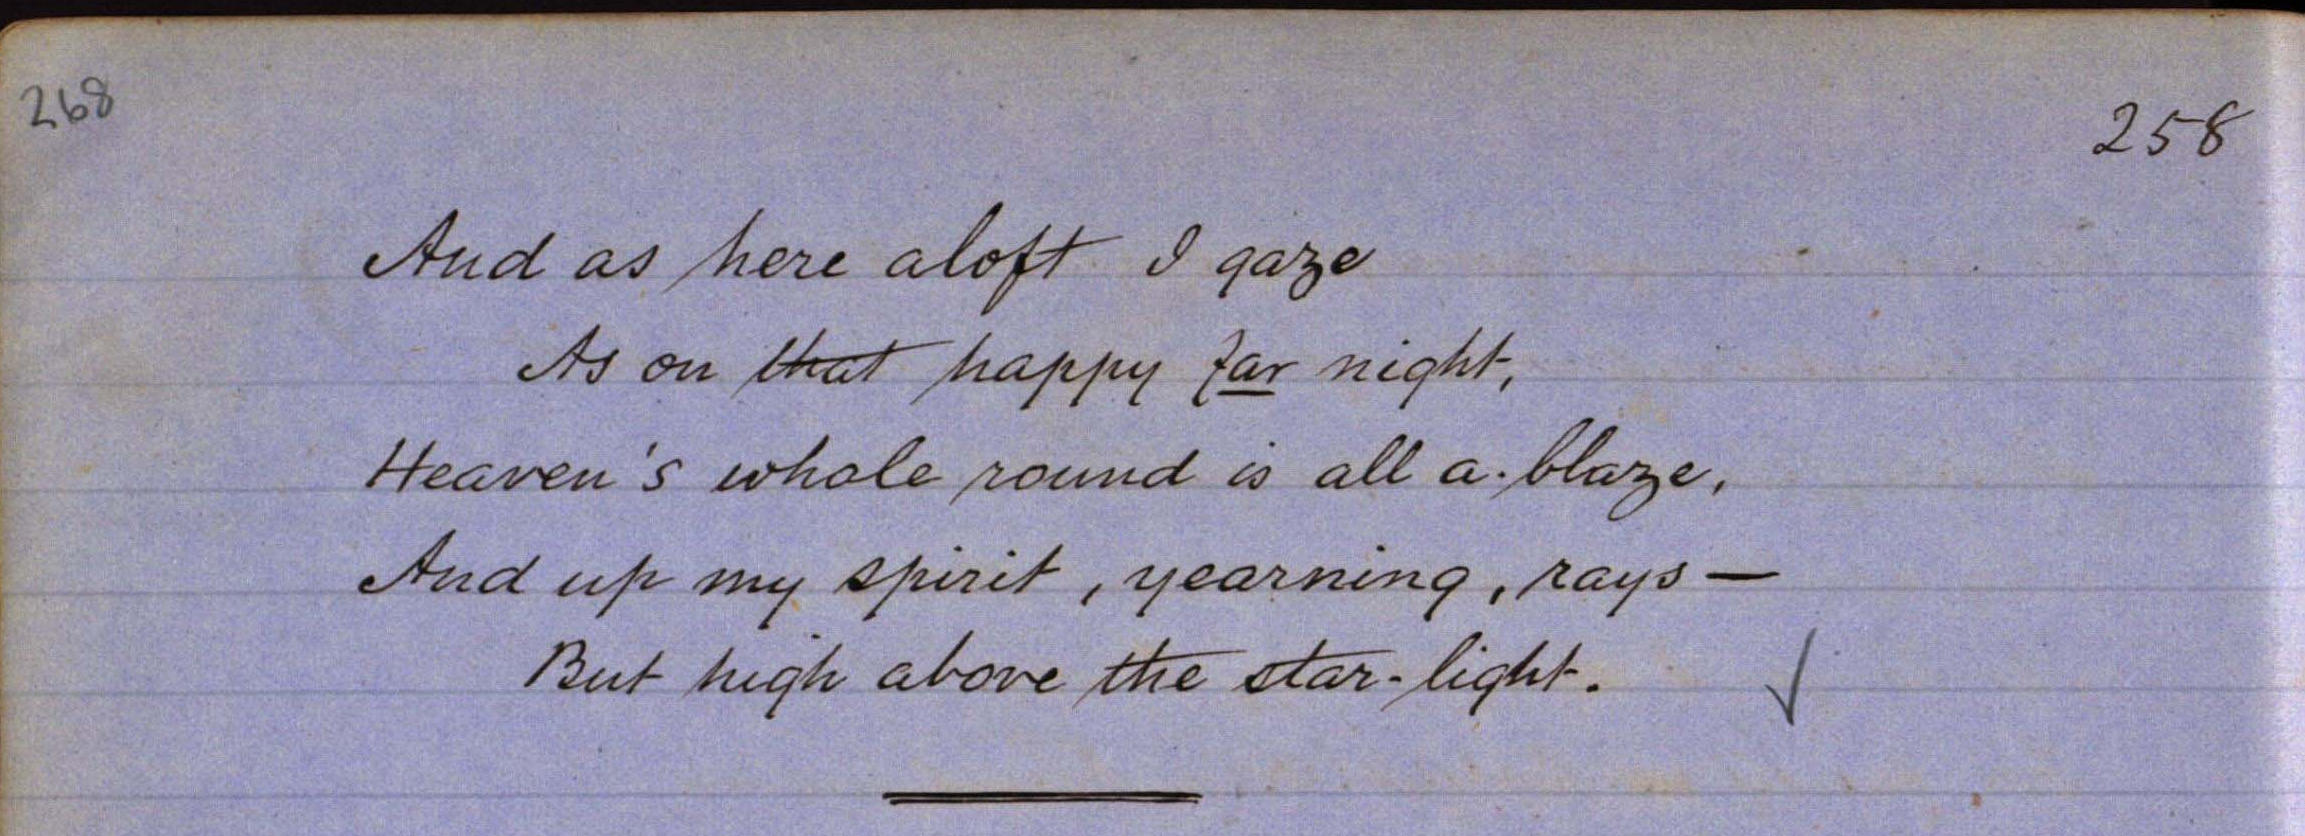 268
258
And as here aloft I gaze
As on that happy far night,
Heaven's whole round is all a-blaze,
And up my spirit, yearning, rays—
But high above the star-light. ✓